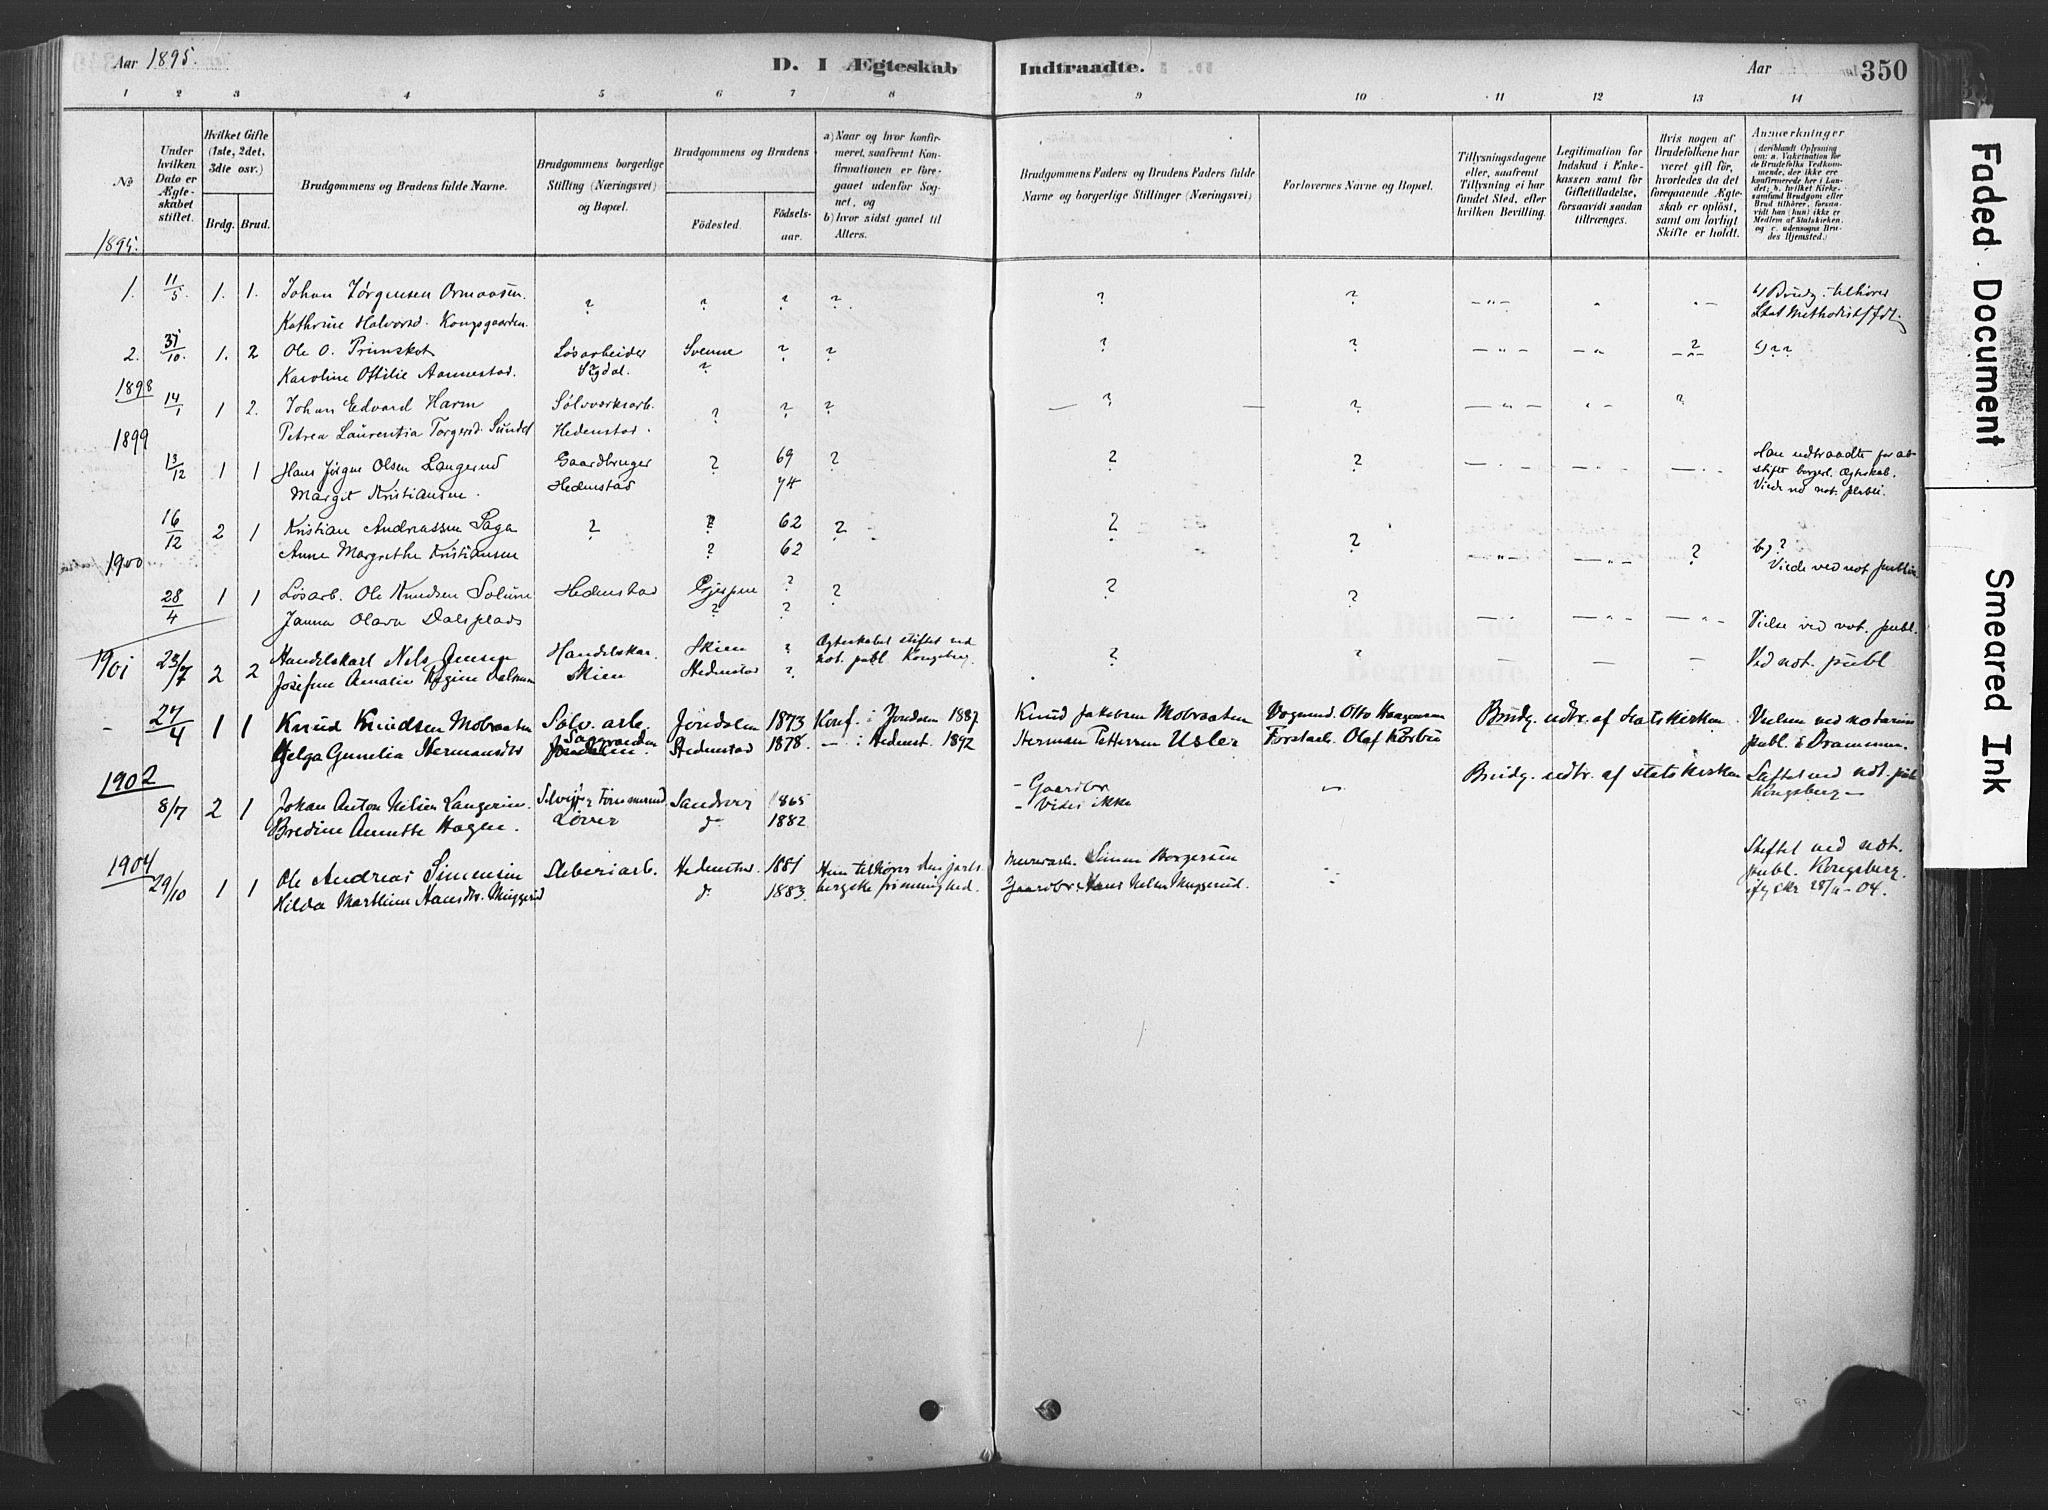 Aar 1895.
D. I Ægteskab Indtraadte.
Aar 350
1 2 3 4 5 6 7 8 9 10 11 12 13 14
No
Under hvilken Dato er Ægteskabet stiftet.
Hvilket Gifte (1ste, 2det, 3die osv.)
Brdg. Brud.
Brudgommens og Brudens fulde Navne.
Brudgommens borgerlige Stilling (Næringsvei) og Bopæl.
Brudgommens og Brudens
Födested.
Födselsaar.
a) Naar og hvor konfirmeret, saafremt Konfirmationen er foregaaet udenfor Sognet, og
b) hvor sidst ganet til Alters.
Brudgommens Faders og Brudens Faders fulde Navne og borgerlige Stillinger (Næringsvei)
Forlovernes Navne og Bopæl.
Tillysningsdagene eller, saafremt Tillysning ei har fundet Sted, efter hvilken Bevilling.
Legitimation for Indskud i Enkekassen samt for Giftetilladelse, forsaavidt saadan tiltrænges.
Hvis nogen af Brudefolkene har været gift för, hvorledes da det foregaaende Ægteskab er oplöst, samt om lovligt Skifte er holdt.
Anmærkninger
(deriblandt Oplysning om: a. Vakcination for de Brudefolks Vedkommende, der ikke ere konfirmerede her i Landet; b. hvilket Kirkesamfund Brudgom eller Brud tilhörer, forsaavidt han (hun) ikke er Medlem af Statskirken, og c. udensogns Brudes Hjemsted.)
1895.
1. 11/5 1. 1. Johan Jörgensen Ormaasen. ? ? ? ? ? ? b) Brudg. tilhører
Kathrine Halvorsd. Kongsgaarden. Methodist
2. 31/10. 1. 2 Ole O. Primskot Løsarbeider Svenne ? ? ? ? ? b) ? ?
Karoline Ottilie Aannestad. Sigdal. ?
1898
14/1 1 2. Johan Edvard Harm Sølvverksarb. ? ? ? ? ? ?
Petrea Laurentia Torgersd. Sundet Hedenstad.
1899
13/12 1 1 Hans Jörgen Olsen Langerud Gaardbruger ? 69 ? ? ? Han udtraadte for at
Margit Kristiansen. Hedenstad 74 stifte borgerl. Ægteskab.
Viede ved not. publ.
16/12 2 1 Kristian Andreassen Saga ? ? 62 ? ? ? ? b) ?
Anne Margrethe Kristiansen ? 62 Viede ved not. publ.
1900
28/4 1 1 Løsarb. Ole Knudsen Solum Hedenstad Gjerpen ? ? ? ?
Janna Olava Dalsplads ? ? Vielse ved not. publ.
1901 23/7 2 2 Handelskarl Nils Jensen Handelskar. Skien ? Ægteskabet stiftet ved ? ? Ved not. publ
Josefine Amalie Regine Skien Hedenstad ? not. publ. Kongsberg.
- 27/4 1 1 Knud Knudsen Mobraaten Sølv. arb. Jondalen 1873 Konf. i Jondalen 1887 Knud Jakobsen Mobraaten Otto Haagensen Brudg. udtr. af Statskirken. Vielsen ved notarius
Helga Gunelia Hermansdtr Jondalen. Hedenstad 1878. — i Hedenst. 1892 Herman Pettersen Usler Olaf Korbøe publ. i Drammen.
1902
8/7 2 1 Johan Anton Nilsen Langerud. Sandsvær 1865 - Gaardbr Brudg. udtr. af statskirken Stiftet ved not. publ
Bredine Annette Hagen. Løver do 1882 - Vides ikke Kongsberg —
1904
29/10 1 1 Ole Andreas Simensen Sliberiarb. Hedenstad 1881 Hun tilhører den jarlsbergske frimenighed. Simen Borgersen Stiftet ved not.
Hilda Marthine Hansdtr. Muggerud do 1883. Gaardbr Hans Nilsen Muggerud. publ. Kongsberg.
28/11 - 04.
Faded Document
Smeared Ink